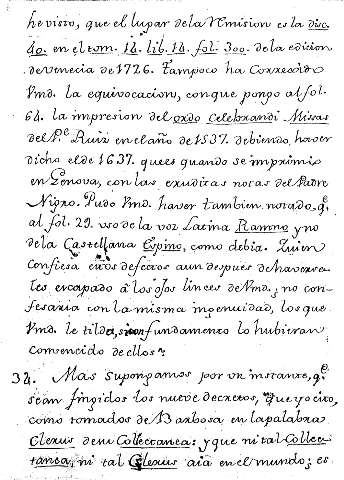 he visto, que el lugar de la Remision es la disc.
40. en el tom. 14. lib. 14. fol. 300. de la edicion
de venecia de 1726. Tampoco ha Corregido
Vmd. la equivocacion, con que pongo al fol.
64. la impresion del ordo Celebrandi Missas
del P.e Ruiz en el año de 1537. debiendo haver
dicho el de 1637. que es quando se imprimiò
en Genova, con las eruditas notas del Padre
Nigro. Pudo Vmd. haver tambien notado, q.e
al fol. 29. uso de la voz Latina Ramno y no
de la Castellana Espino, como debia. Quien
confiesa estos defectos aun despues de haverse-
les escapado à los ojos linces de Vmd., no con-
fesaria con la misma ingenuidad, los que
Vmd. le tilda, si con fundamento lo hubieran
convencido de ellos?
34. Mas supongamos por un instante, q.e
sean fingidos los nueve decretos, que yo cito,
como tomados de Barbosa en la palabra
Clerus de su Collectanea: y que ni tal Collec-
tanea, ni tal Clerus aia en el mundo; es